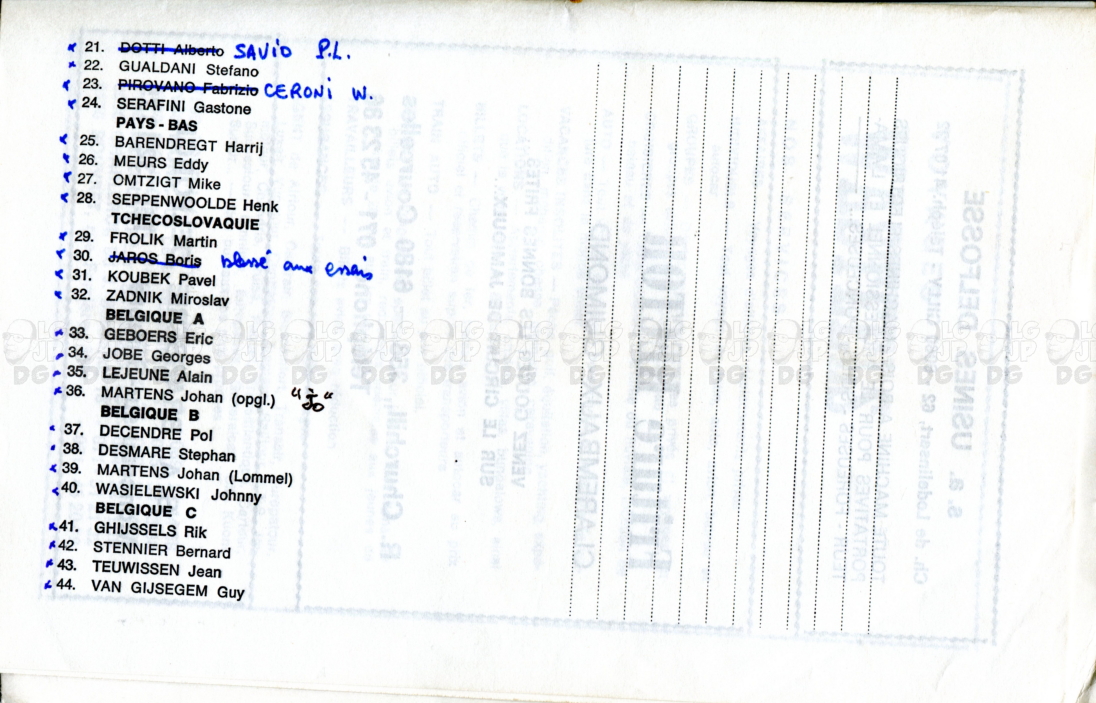 21. DOTTI Alberto SAVIO P.L.
22. GUALDANI Stefano
23. PIROVANO Fabrizio CERONI W.
24. SERAFINI Gastone
PAYS - BAS
25. BARENDREGT Harrij
26. MEURS Eddy
27. OMTZIGT Mike
28. SEPPENWOOLDE Henk
TCHECOSLOVAQUIE
29. FROLIK Martin
30. JAROS Boris blessé aux essais
31. KOUBEK Pavel
32. ZADNIK Miroslav
BELGIQUE A
33. GEBOERS Eric
34. JOBE Georges
35. LEJEUNE Alain
36. MARTENS Johan (opgl.) "Jo"
BELGIQUE B
37. DECENDRE Pol
38. DESMARE Stephan
39. MARTENS Johan (Lommel)
40. WASIELEWSKI Johnny
BELGIQUE C
41. GHIJSSELS Rik
42. STENNIER Bernard
43. TEUWISSEN Jean
44. VAN GIJSEGEM Guy